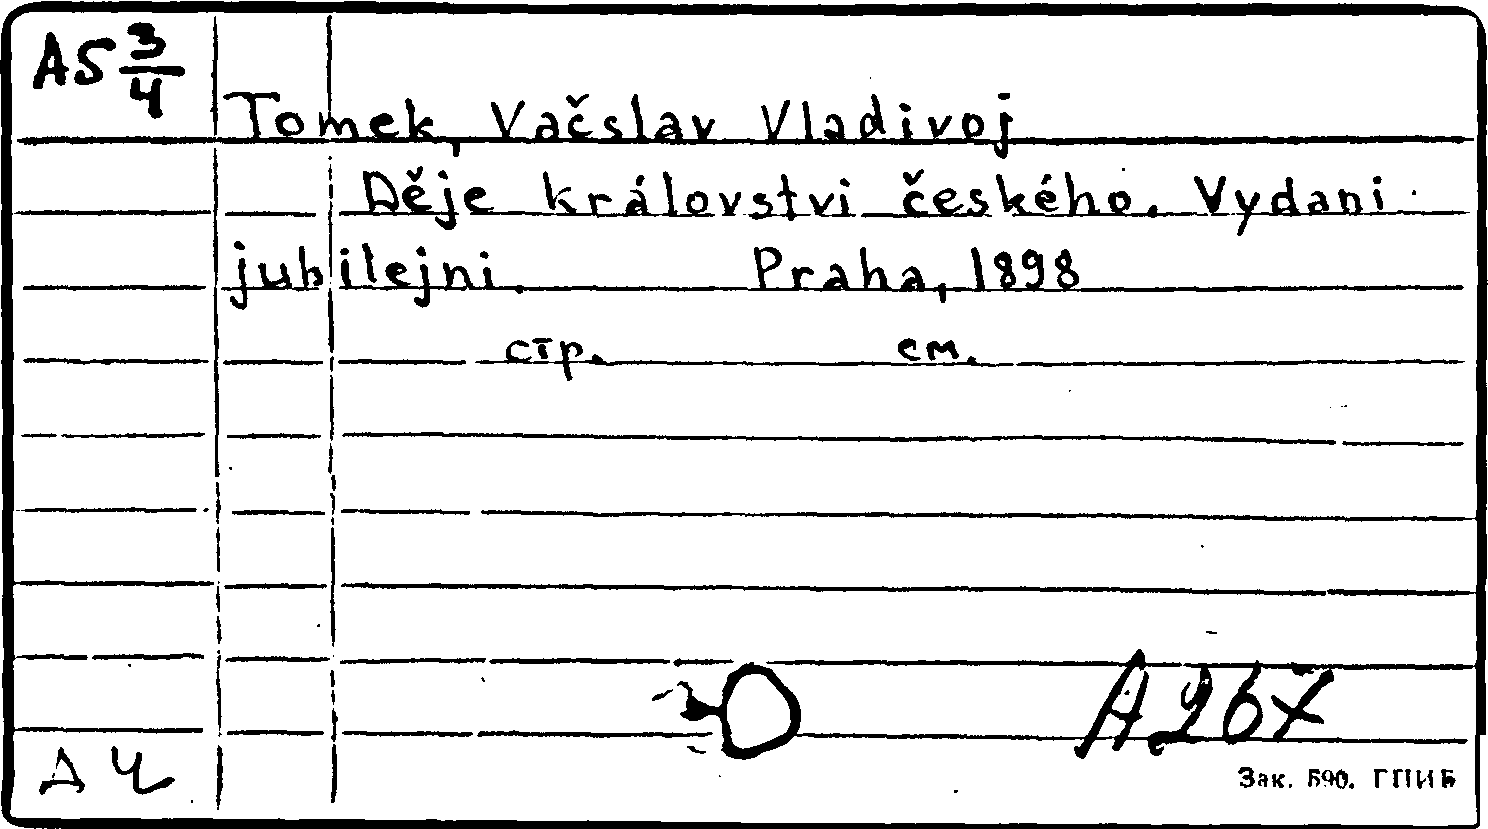 AS 3/4
Tomek, Vačslav Vladivoj
Děje královstvi českého. Vydani
jubilejni. Praha, 1898
стр. см.
A267
Д Ч
Зак. 590. ГПИБ